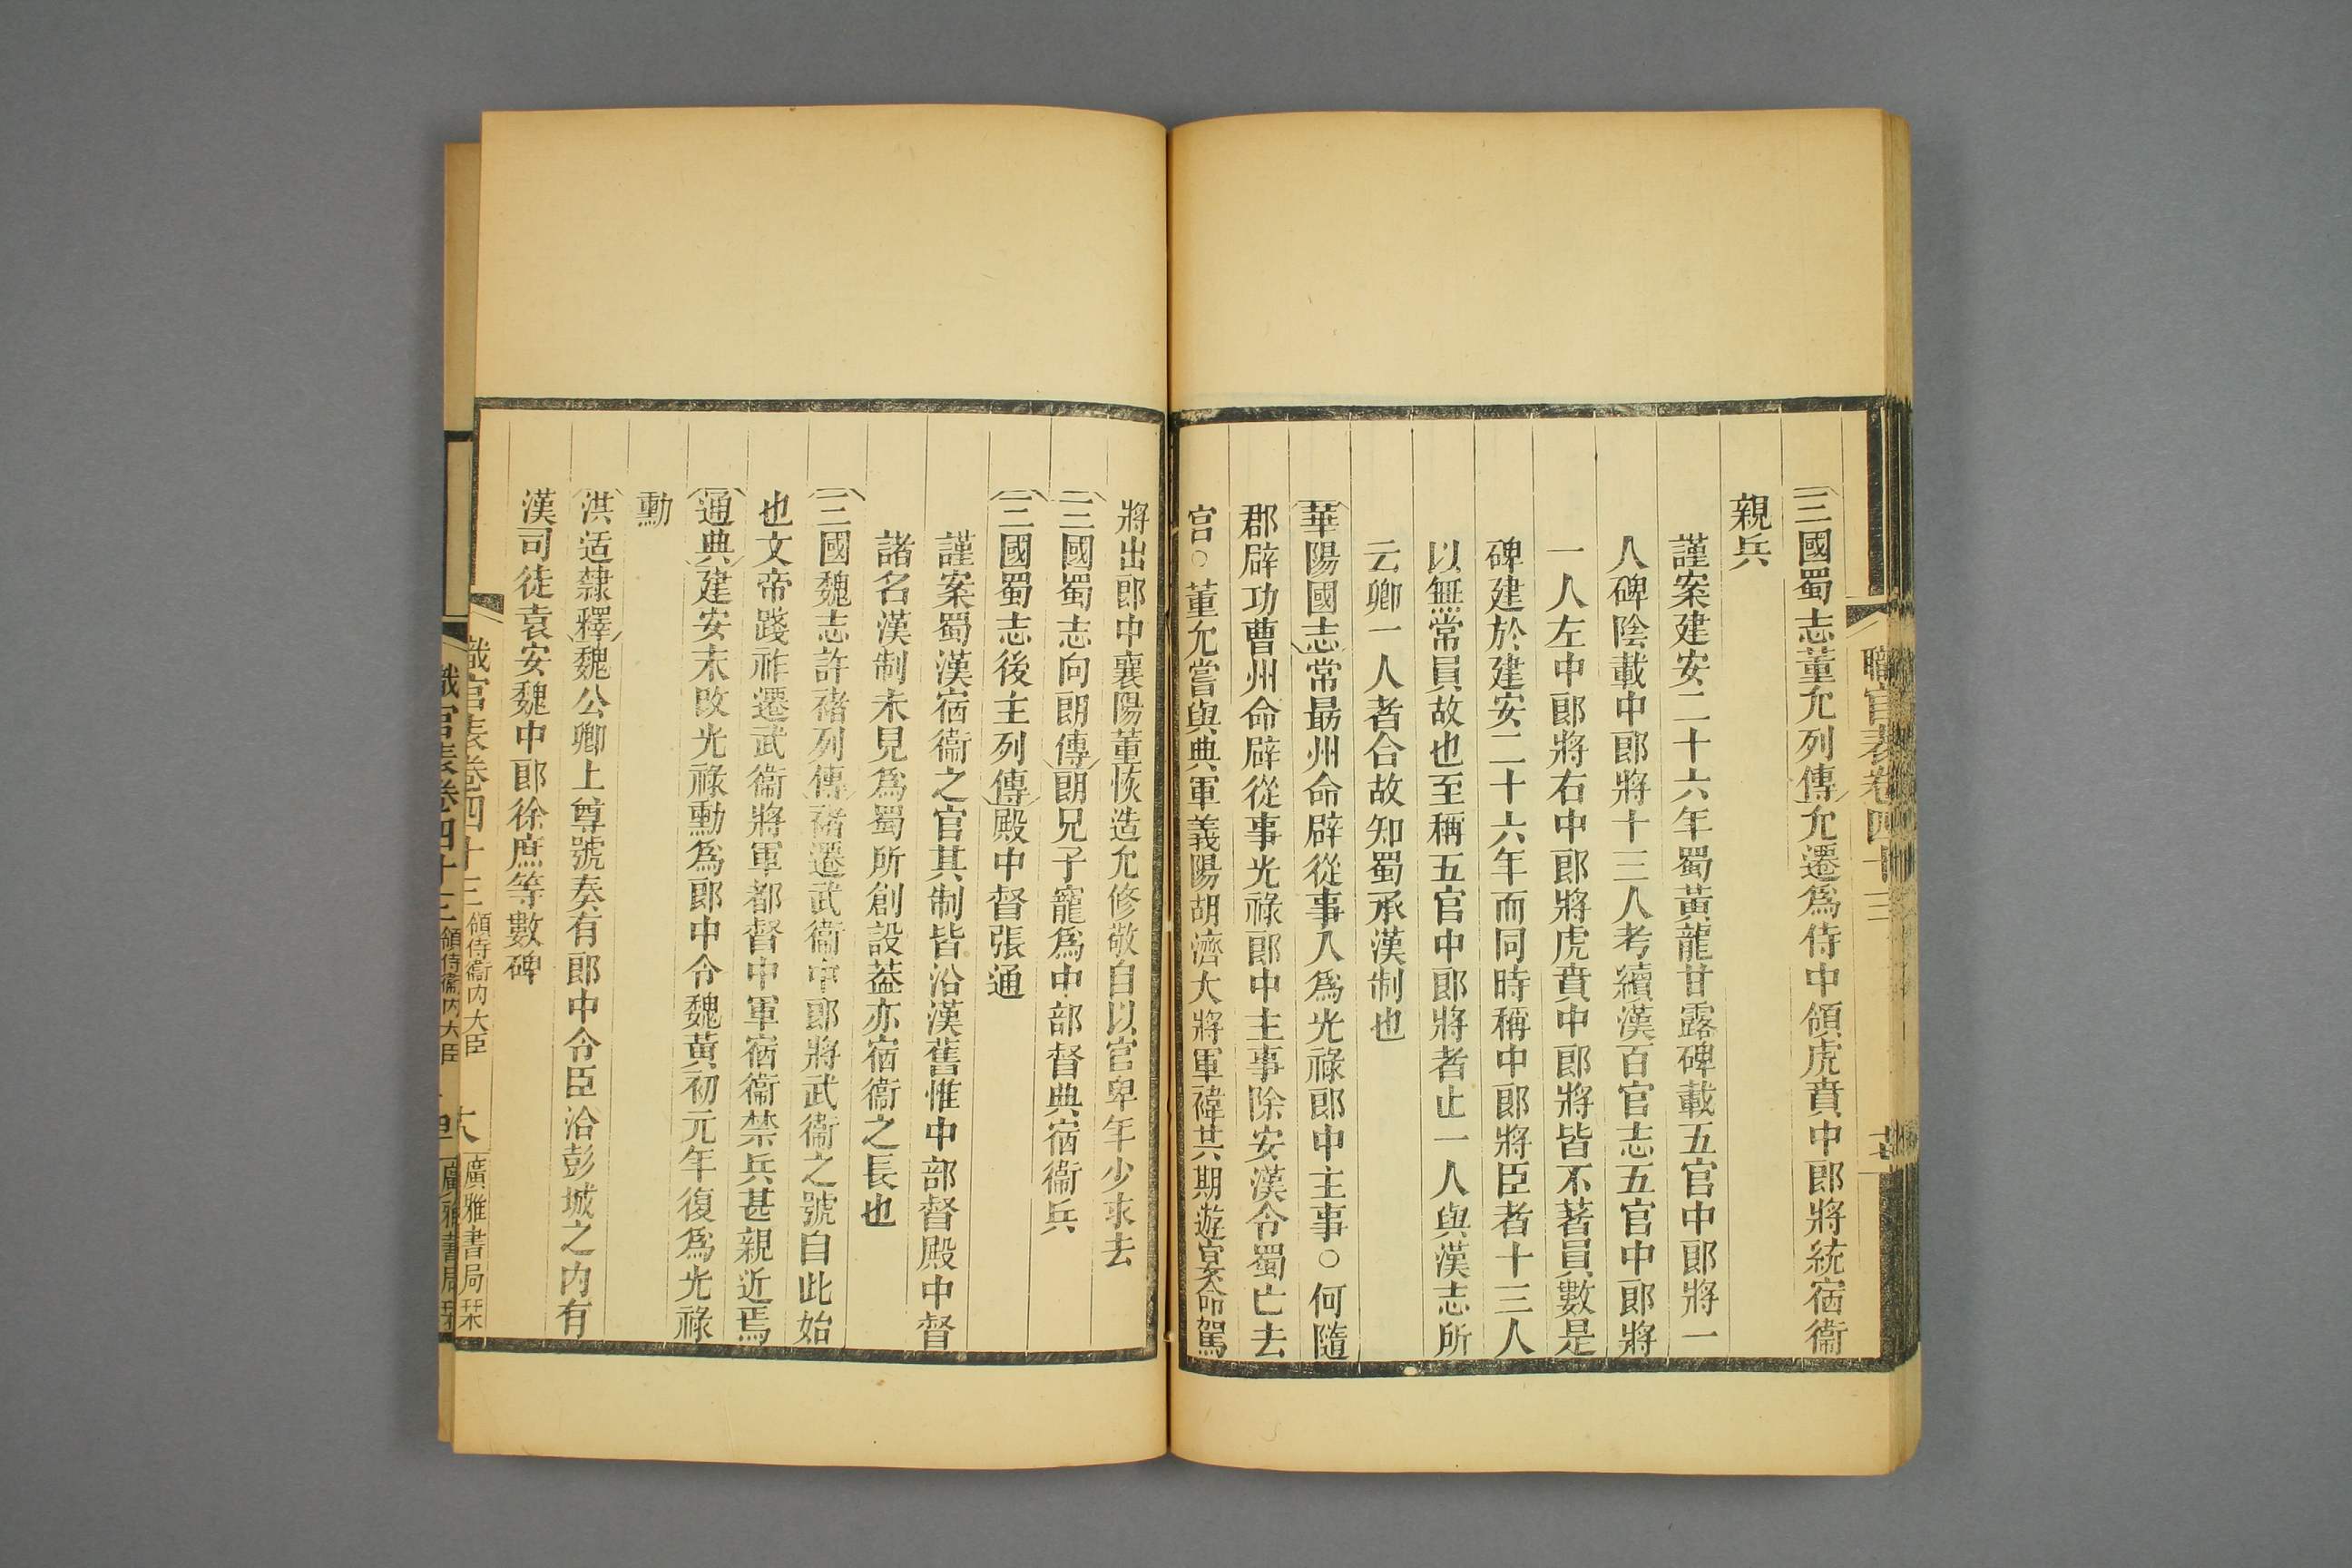 三國蜀志董允列傳允遷為侍中領虎賁中郎將統宿衞
親兵
謹案建安二十六年蜀黃龍甘露碑載五官中郎將一
人碑陰載中郎將十三人考續漢百官志五官中郎將
一人左中郎將右中郎將虎賁中郎將皆不著員數是
碑建於建安二十六年而同時稱中郎將臣者十三人
以無常員故也至稱五官中郎將者止一人與漢志所
云卿一人者合故知蜀承漢制也
華陽國志常勗州命辟從事入為光祿郎中主事○何隨
郡辟功曹州命辟從事光祿郎中主事除安漢令蜀亡去
官○董允嘗與典軍義陽胡濟大將軍禕共期遊宴命駕
將出郎中襄陽董恢造允修敬自以官卑年少求去
三國蜀志向朗傳朗兄子寵為中部督典宿衞兵
三國蜀志後主列傳殿中督張通
謹案蜀漢宿衞之官其制皆沿漢舊惟中部督殿中督
諸名漢制未見為蜀所創設葢亦宿衞之長也
三國魏志許褚列傳褚遷武衞中郎將武衞之號自此始
也文帝踐祚遷武衞將軍都督中軍宿衞禁兵甚親近焉
通典建安末改光祿勳為郎中令魏黃初元年復為光祿
勳
洪适隸釋魏公卿上尊號奏有郎中令臣洽彭城之內有
漢司徒袁安魏中郎徐庶等數碑
職官表卷四十三 領侍衞內大臣 廣雅書局栞